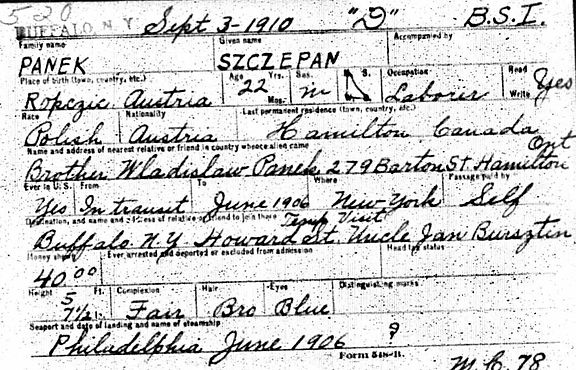 520
BUFFALO, N.Y. Sept 3-1910 "D" B.S.I.
Family name Given name Accompanied by
PANEK SZCZEPAN
Place of birth (town, country, etc.) Age Yrs. Mos. Sex S. Occupation Read Write
Ropczic Austria 22 M Laborer Yes
Race Nationality Last permanent residence (town, country, etc.)
Polish Austria Hamilton Canada
Name and address of nearest relative or friend in country whence alien came Ont
Brother Wladislaw Panek 279 Barton St. Hamilton
Ever in U.S. From To Where Passage paid by
Yes In transit June 1906 New York Self
Destination, and name and address of relative or friend to join there Temp Visit
Buffalo N.Y. Howard St. Uncle Jan Bursztin
Money shown Ever arrested and deported or excluded from admission Head tax status
40.00
Height Ft. Complexion Hair Eyes Distinguishing marks
5 7½ Fair Bro Blue
Seaport and date of landing and name of steamship
Philadelphia June 1906 ?
Form 548-B.
M.C. 78